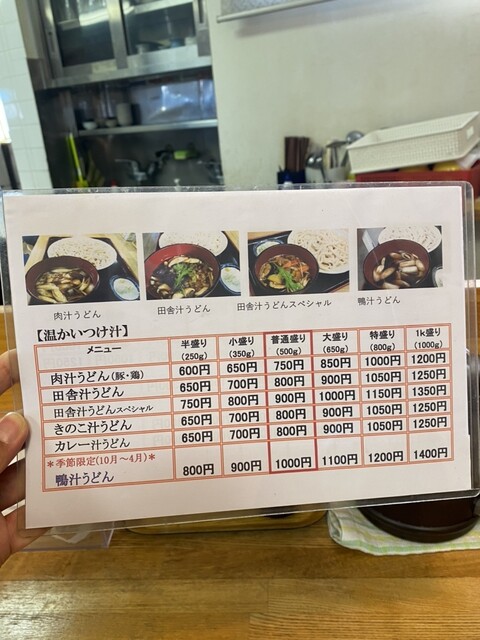 肉汁うどん
田舎汁うどん
田舎汁うどんスペシャル
鴨汁うどん
【温かいつけ汁】
メニュー 半盛り (250g) 小盛り (350g) 普通盛り (500g) 大盛り (650g) 特盛り (800g) 1k盛り (1000g)
肉汁うどん(豚・鶏) 600円 650円 750円 850円 1000円 1200円
田舎汁うどん 650円 700円 800円 900円 1050円 1250円
田舎汁うどんスペシャル 750円 800円 900円 1000円 1150円 1350円
きのこ汁うどん 650円 700円 800円 900円 1050円 1250円
カレー汁うどん 650円 700円 800円 900円 1050円 1250円
*季節限定(10月～4月)*
鴨汁うどん 800円 900円 1000円 1100円 1200円 1400円